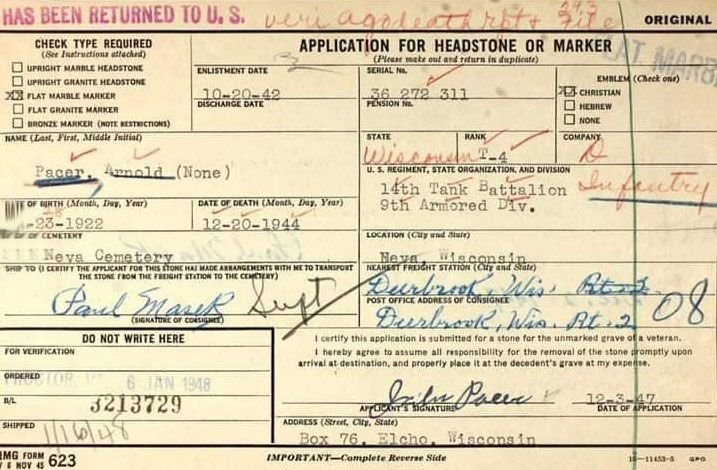 HAS BEEN RETURNED TO U. S.
veri ago death rpt & file
ORIGINAL
CHECK TYPE REQUIRED
(See Instructions attached)
UPRIGHT MARBLE HEADSTONE
UPRIGHT GRANITE HEADSTONE
XX FLAT MARBLE MARKER
FLAT GRANITE MARKER
BRONZE MARKER (NOTE RESTRICTIONS)
APPLICATION FOR HEADSTONE OR MARKER
(Please make out and return in duplicate)
FLAT MARB
ENLISTMENT DATE
10-20-42
DISCHARGE DATE
SERIAL No.
36 272 311
PENSION No.
EMBLEM (Check one)
XX CHRISTIAN
HEBREW
NONE
NAME (Last, First, Middle Initial)
Pacer, Arnold (None)
STATE
Wisconsin
RANK
T-4
COMPANY
D
U. S. REGIMENT, STATE ORGANIZATION, AND DIVISION
14th Tank Battalion
9th Armored Div.
Infantry
DATE OF BIRTH (Month, Day, Year)
-23-1922
DATE OF DEATH (Month, Day, Year)
12-20-1944
CEMETERY
Neva Cemetery
LOCATION (City and State)
Neva, Wisconsin
SHIP TO (I CERTIFY THE APPLICANT FOR THIS STONE HAS MADE ARRANGEMENTS WITH ME TO TRANSPORT
THE STONE FROM THE FREIGHT STATION TO THE CEMETERY)
Paul Masek Supt
(SIGNATURE OF CONSIGNEE)
NEAREST FREIGHT STATION (City and State)
Deerbrook, Wis. Rt. 2
POST OFFICE ADDRESS OF CONSIGNEE
Deerbrook, Wis. Rt. 2
08
DO NOT WRITE HERE
FOR VERIFICATION
ORDERED
PROCTOR VT 6 JAN 1948
B/L
3213729
SHIPPED
1/16/48
I certify this application is submitted for a stone for the unmarked grave of a veteran.
I hereby agree to assume all responsibility for the removal of the stone promptly upon
arrival at destination, and properly place it at the decedent's grave at my expense.
John Pacer
12-3-47
APPLICANT'S SIGNATURE
DATE OF APPLICATION
ADDRESS (Street, City, State)
Box 76, Elcho, Wisconsin
QMG FORM
REV 6 NOV 45 623
IMPORTANT—Complete Reverse Side
16—11453-5 GPO